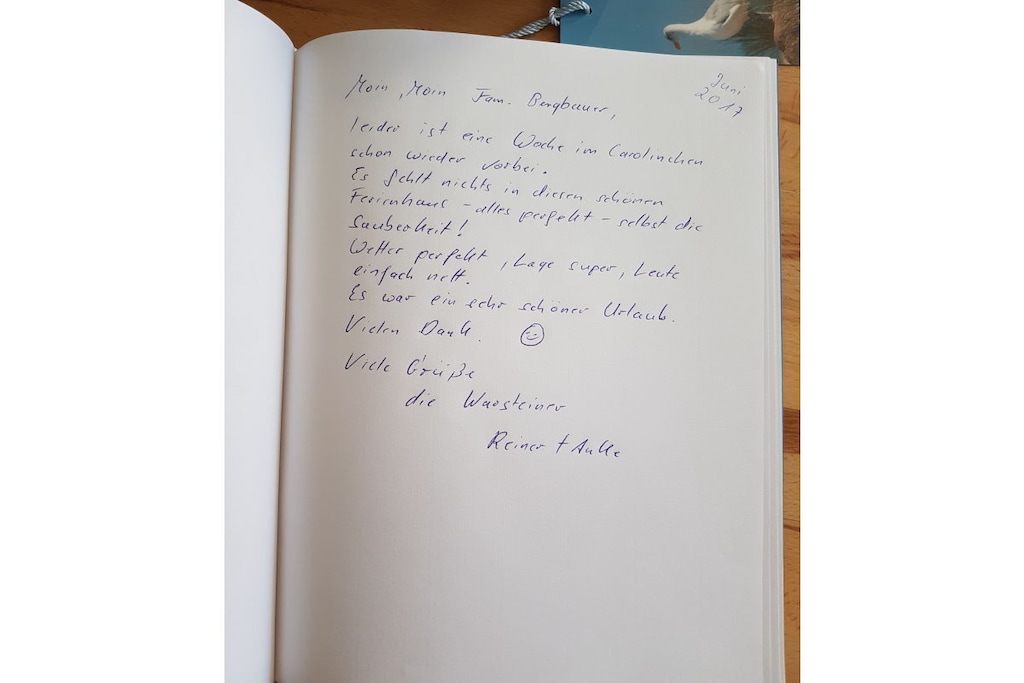 Juni
2017
Moin, Moin Fam. Bergbauer,
leider ist eine Woche im Carolinchen
schon wieder vorbei.
Es fehlt nichts in diesen schönen
Ferienhaus - alles perfekt - selbst die
Sauberkeit!
Wetter perfekt, Lage super, Leute
einfach nett.
Es war ein sehr schöner Urlaub.
Vielen Dank. ☺
Viele Grüße
die Warsteiner
Reiner + Anke